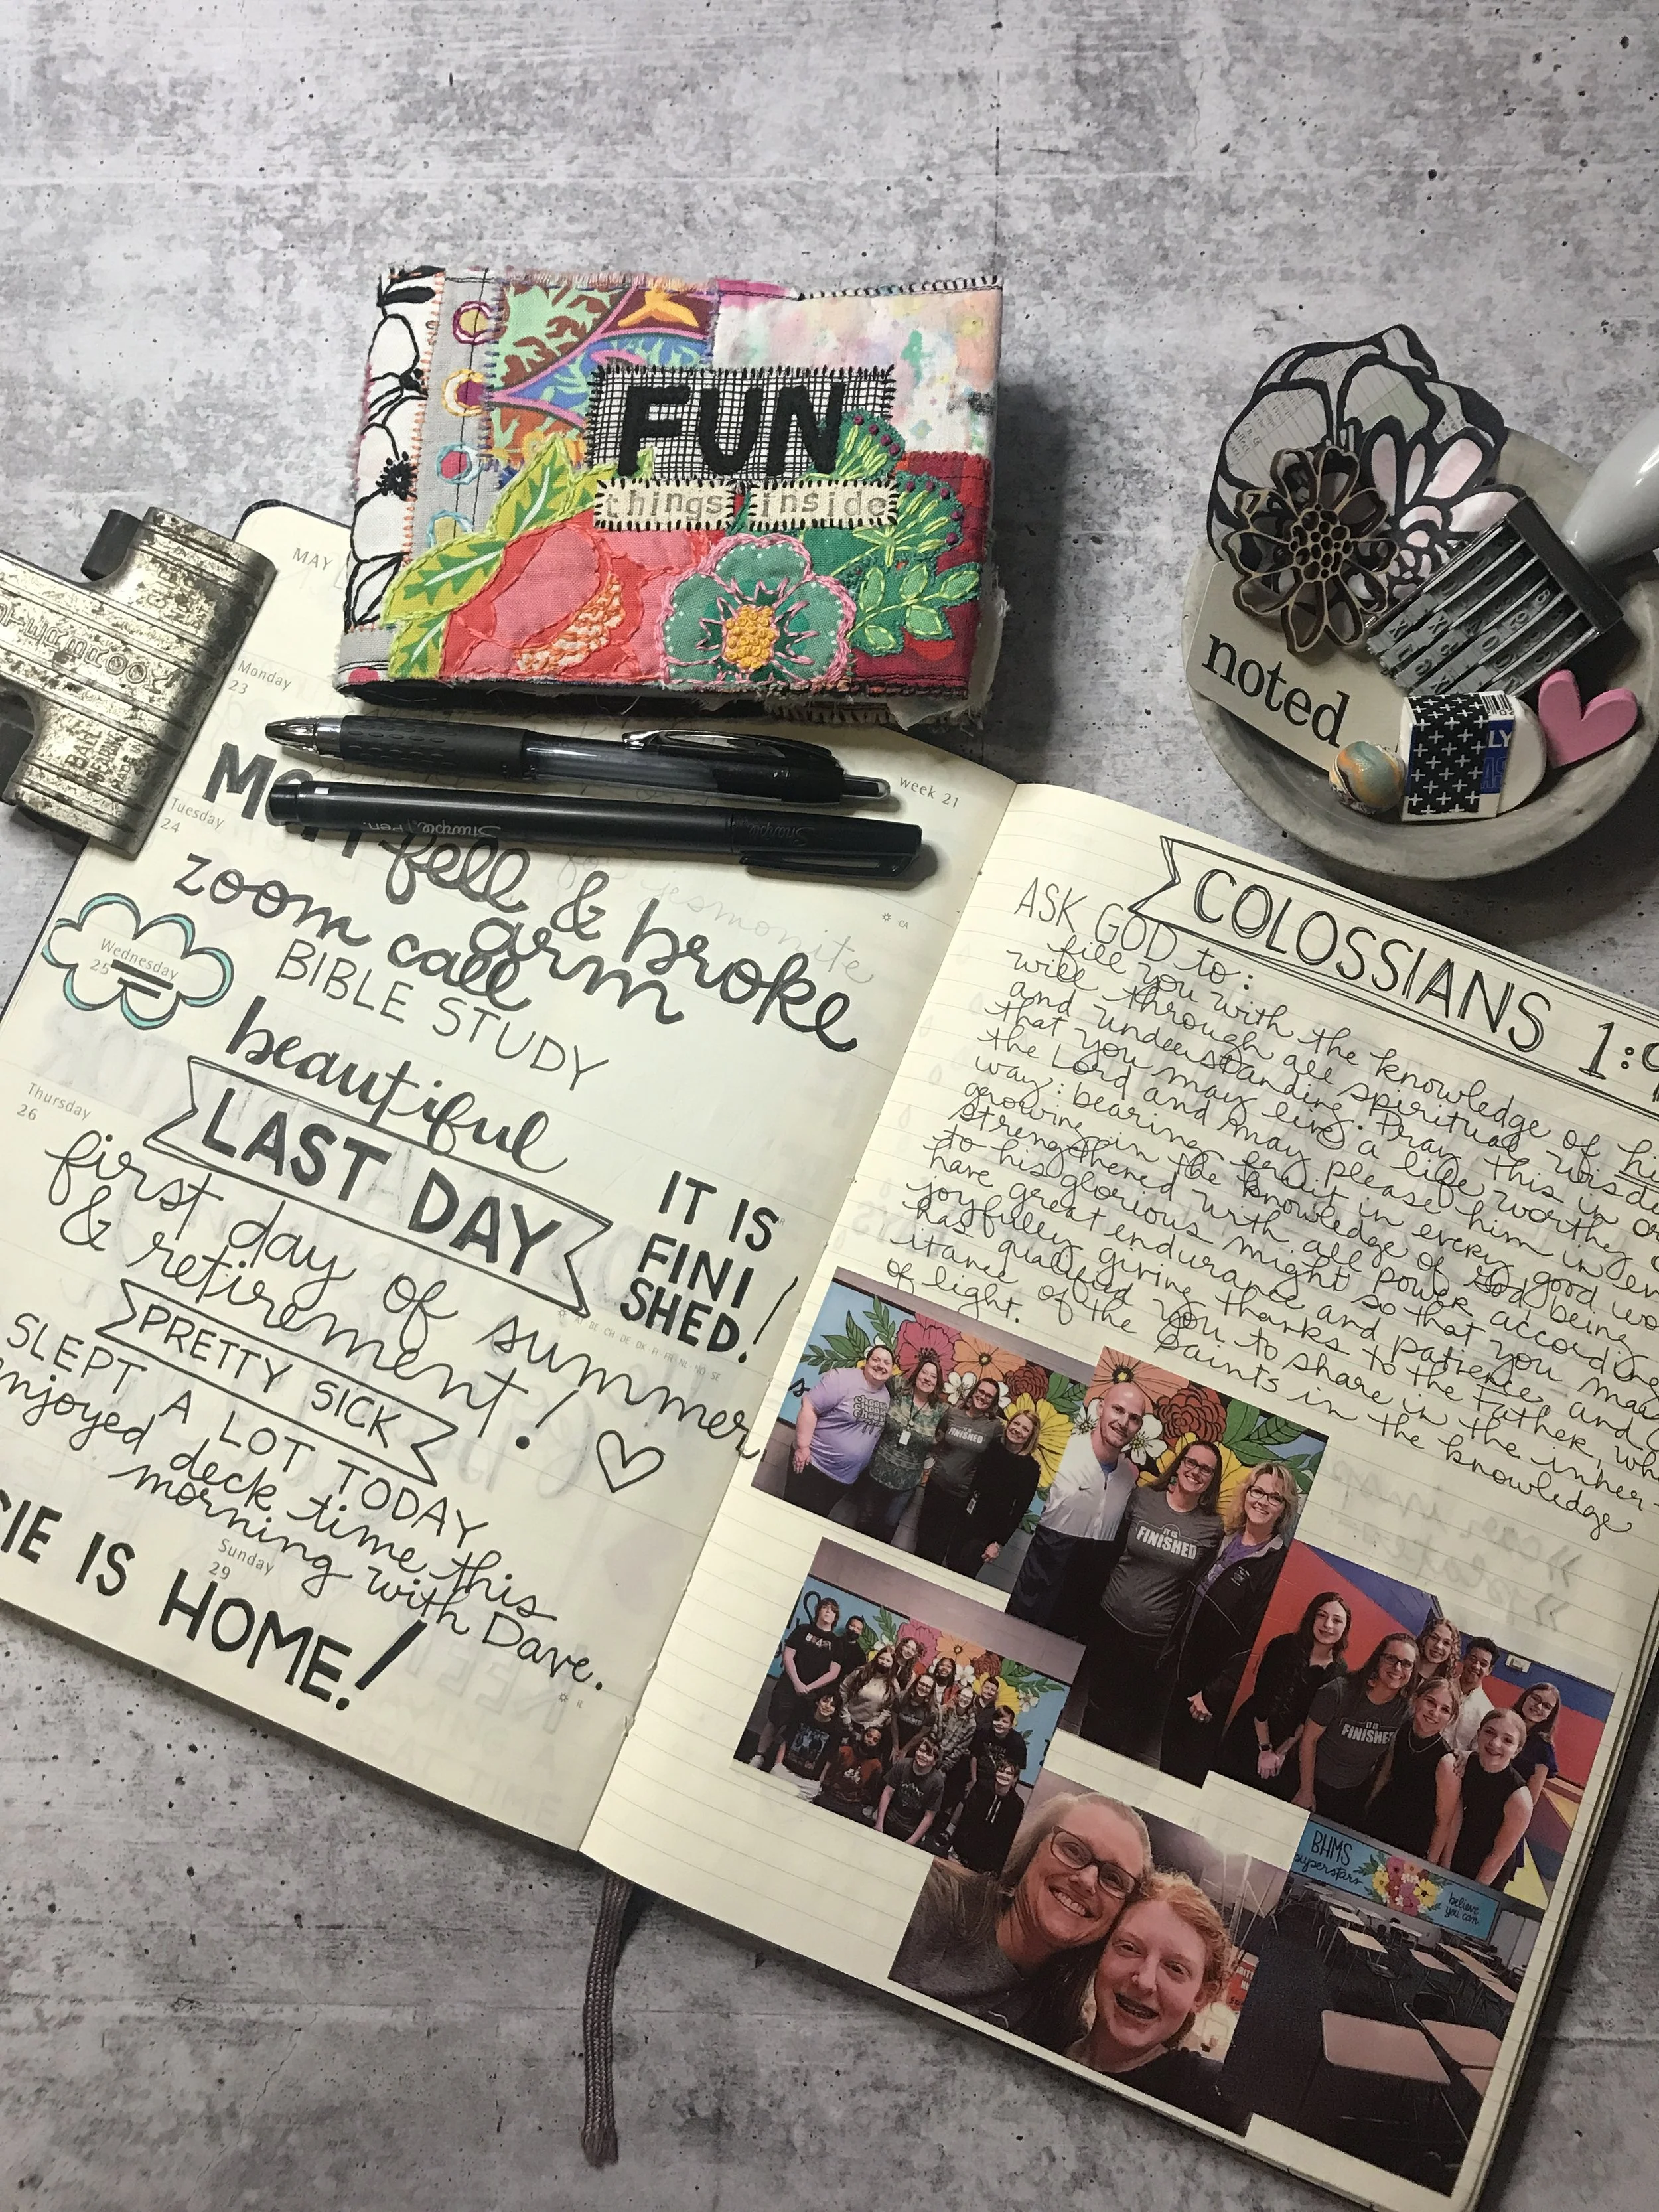 FUN
things inside
noted
MAY
Monday
23
week 21
Tuesday
24
fell & broke
arm
zoom call
BIBLE STUDY
Wednesday
25
beautiful
LAST DAY
IT IS
FINI
SHED!
Thursday
26
first day of summer
& retirement!
PRETTY SICK
SLEPT A LOT TODAY
enjoyed deck time this
morning with Dave.
Sunday
29
IS HOME!
COLOSSIANS 1:9
ASK GOD to:
fill you with the knowledge of his
will through all spiritual
and understanding. Pray this in
that you may live a life worthy
the Lord and may please him in
way: bearing fruit in every good
growing in the knowledge of God, being
strengthened with all power
to his glorious might so that you
have great endurance and patience, and
joyfully giving thanks to the Father, who
has qualified you to share in the inher-
itance of the saints in the knowledge
of light.
FINISHED
IT IS
FINISHED
IT IS
FINISHED
BHMS
superstars
believe
you can.
Sharpie Pen